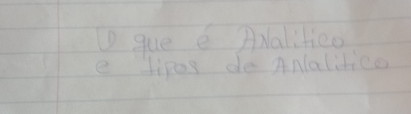 O que é Analitico
e tipos de Anlalitico